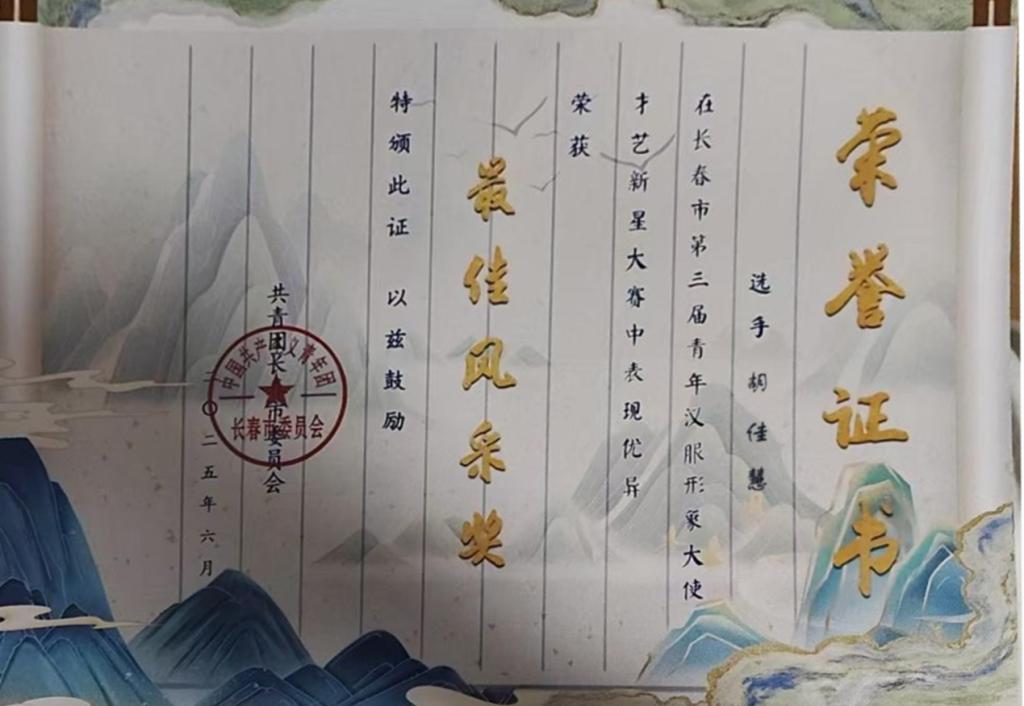 荣誉证书
选手 胡佳慧
在长春市第三届青年汉服形象大使
才艺新星大赛中表现优异
荣获
最佳风采奖
特颁此证 以兹鼓励
共青团长春市委员会
二〇二五年六月
中国共产主义青年团
长春市委员会